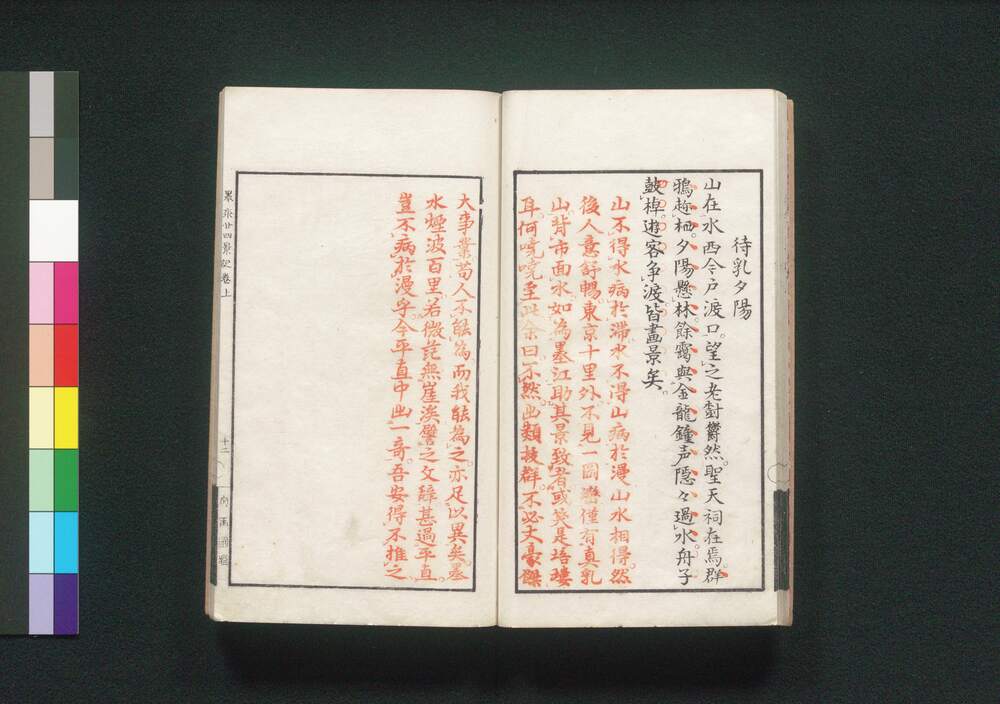 待乳夕陽
山在水西今戸渡口望之老對欝然聖天祠在焉群
鴉趍栖夕陽懸林餘靄與金龍鐘声隠々過水舟子
鼓棹遊客争渡皆畫景矣
山不得水病於滞水不得山病於漫山水相得然
後人意舒暢東京十里外不見一岡巒僅有真乳
山背市面水如為墨江助其景致者或笑是培塿
耳何嘵嘵至此余曰不然出類抜群不必丈豪傑
大事業苟人不能為而我能為之亦足以異矣墨
水煙波百里若微茫無崖涘譬之文辞甚過平直
豈不病於漫乎今平直中出一奇吾安得不推之
墨水廿四景記卷上
十二